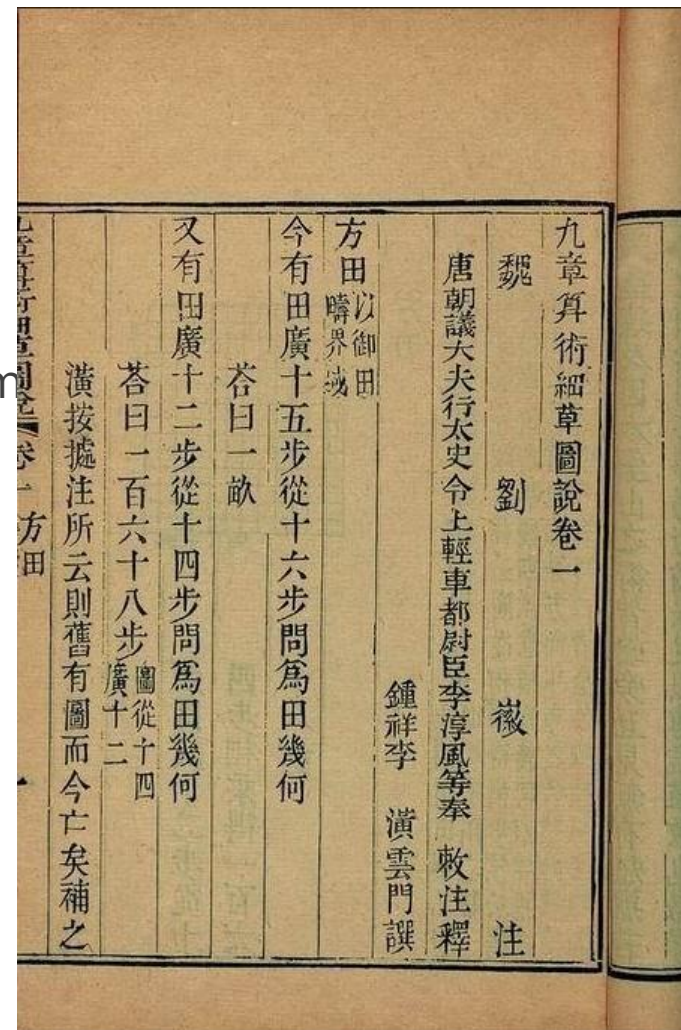 九章算術細草圖說卷一
魏 劉 徽 注
唐朝議大夫行太史令上輕車都尉臣李淳風等奉 敕注釋
鍾祥李 潢雲門譔
方田以御田疇界域
今有田廣十五步從十六步問爲田幾何
荅曰一畝
又有田廣十二步從十四步問爲田幾何
荅曰一百六十八步圖從十四廣十二
潢按據注所云則舊有圖而今亡矣補之
九章算術細草圖說 卷一 方田 一
m